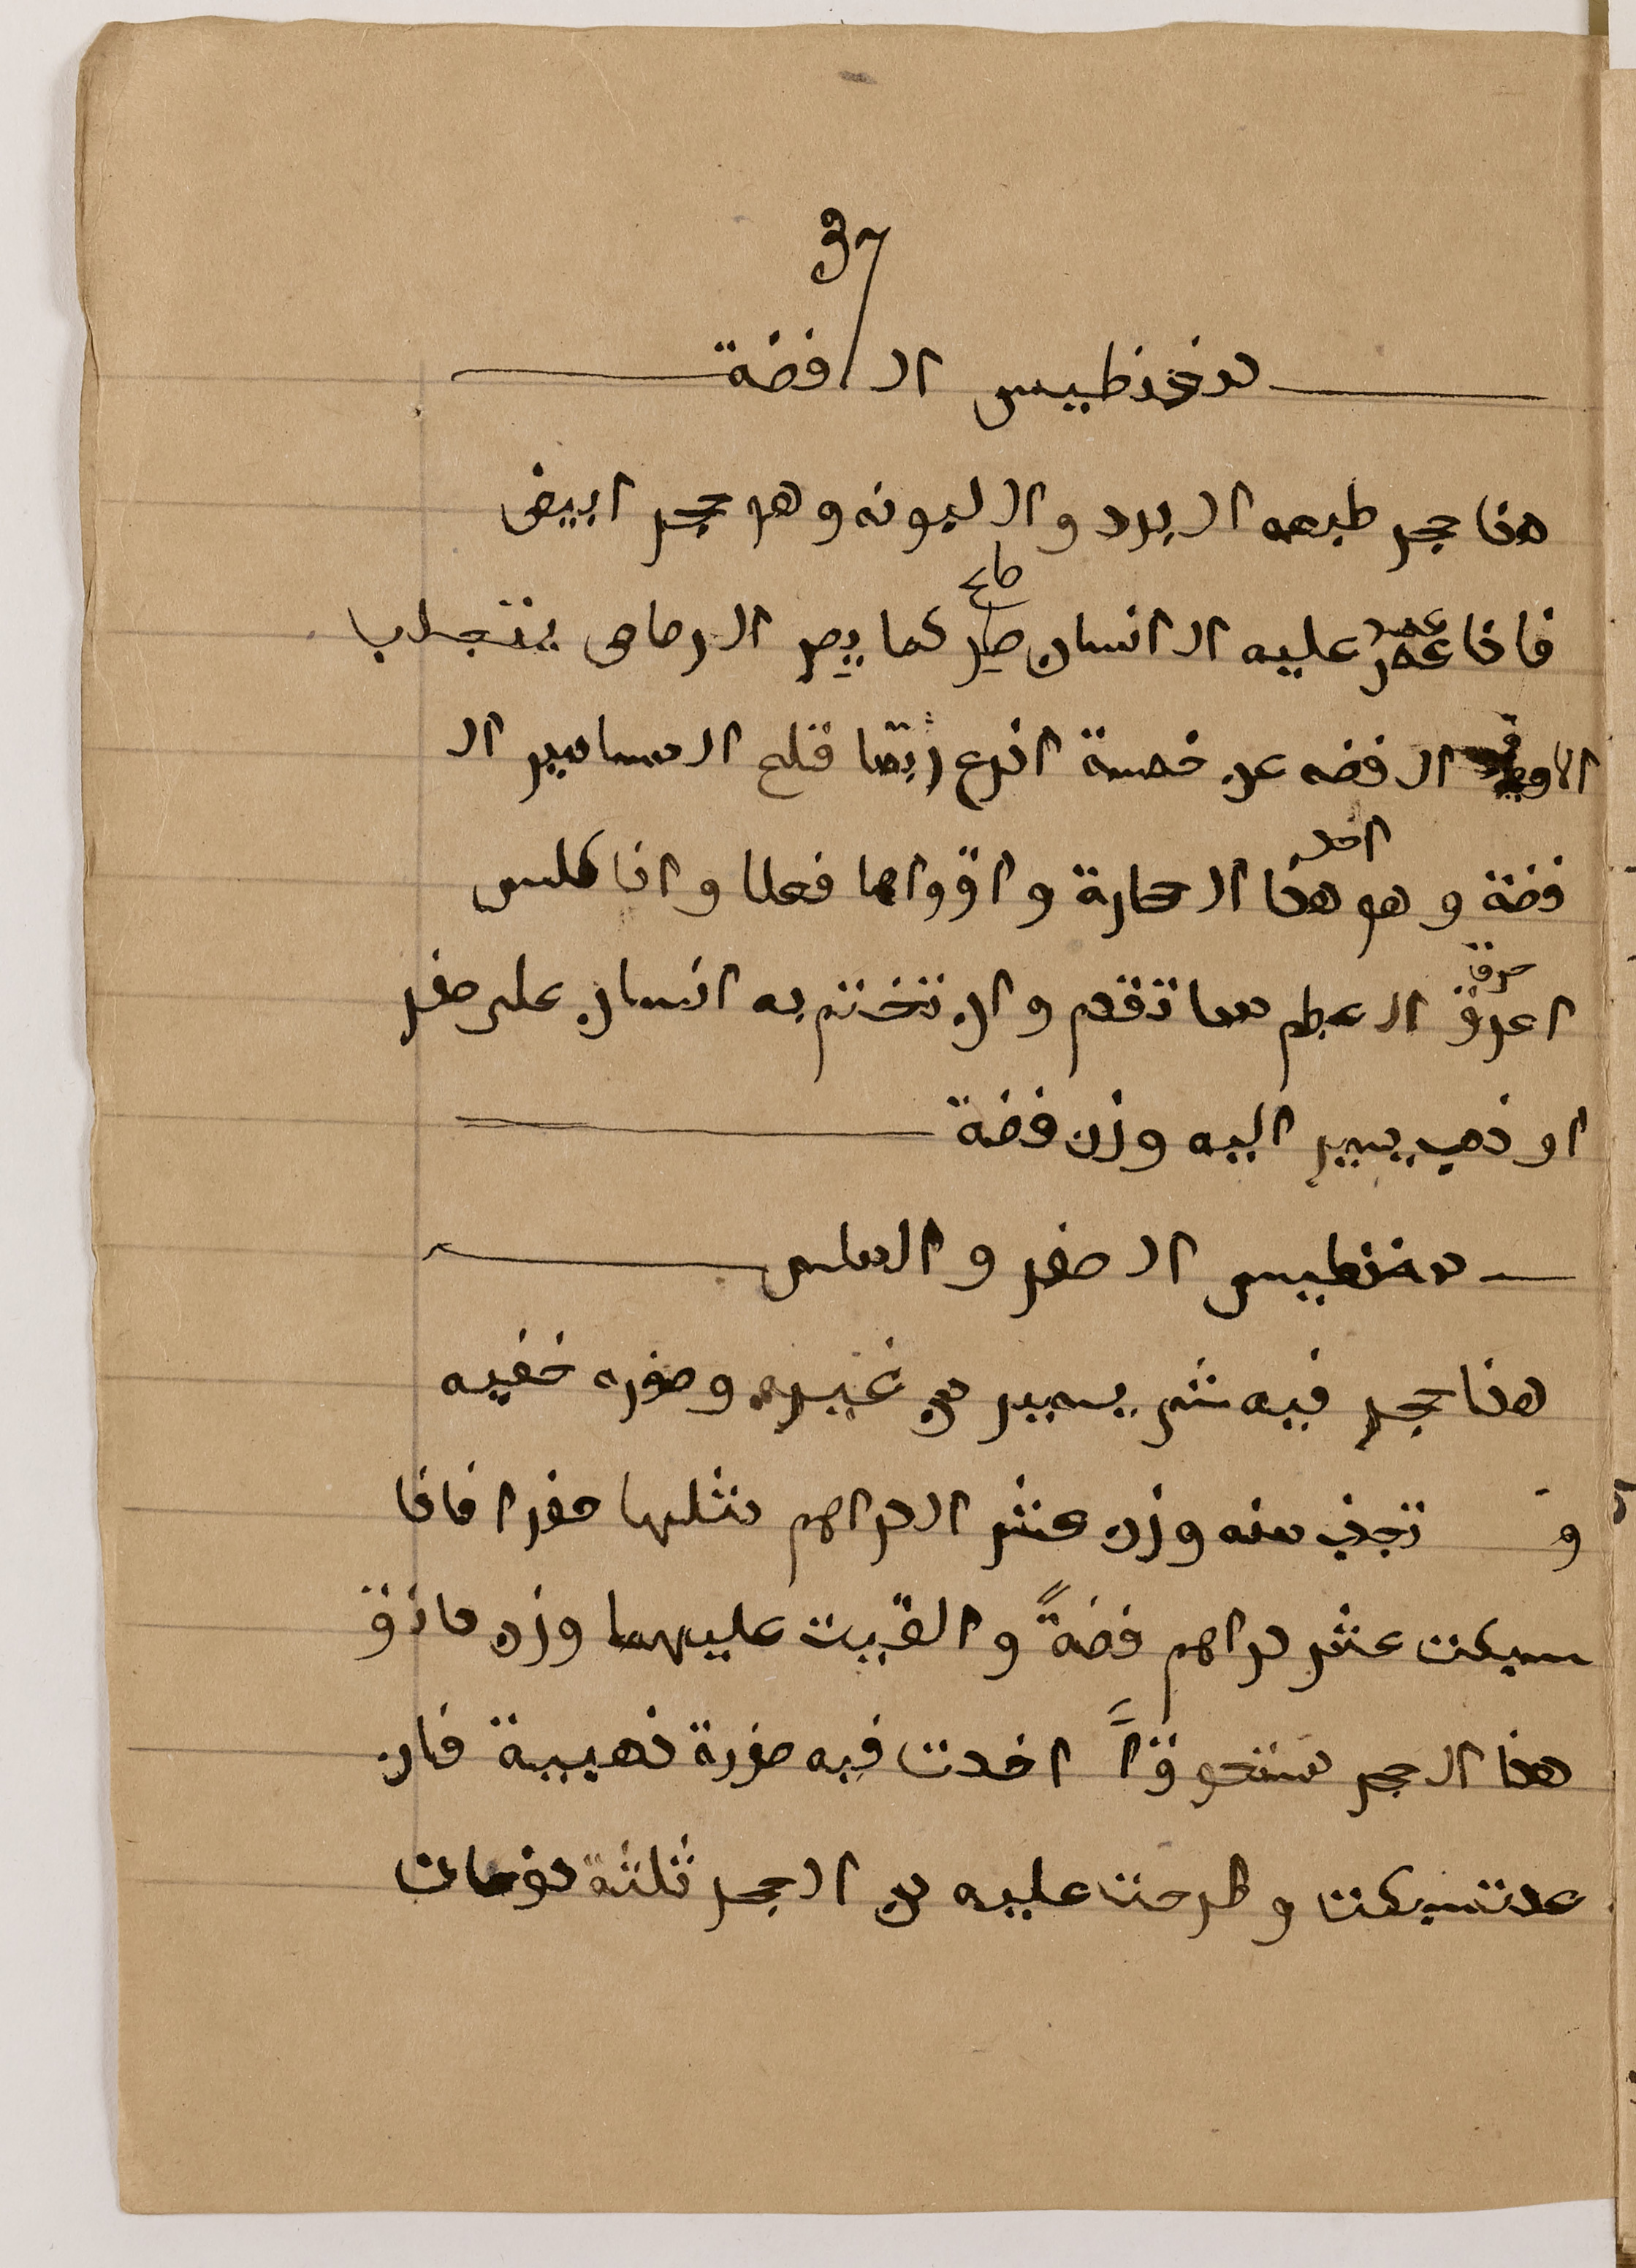 37
مغنطيس ال فضة
هذا حجر طبعه البرد و اليبونه وهو حجر ابيض
فاذا عمر عليه الانسان صر كما يصر الرصاص
الفضه عن خمسة اذرع قلع المسامير ال
فضة و هو هذا الحجارة و اقواها فعلا و اذا كلس
احرق العظم مما تقدم و ان تختم به انسان على صفر
او ذهب يسير اليه وزن فضة
مغنطيس ال صفر و الملس
هذا حجر فيه شى يسير من غبره و صفره خفيه
و تجذب منه وزن عشر الدراهم مثلها صفرا فاذا
سبكت عشر دراهم فضةً و القيت عليهما وزن
هذا الحجر مسحوقاً اخدت فيه صفرة ذهبية فان
عدت سبكت و طرحت عليه من الحجر ثلثة